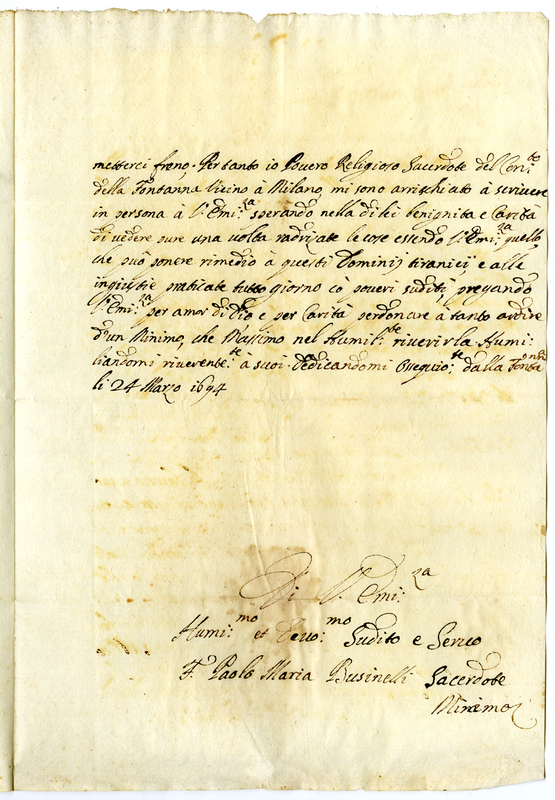 metterci freno. Pertanto io Povero Religioso Sacerdote del Con:to
della Fontanna vicino à Milano, mi sono arrischiato à scrivere
in persona à V. Emi:za sperando nella di lei benignita e Carità
di vedere pure una volta radrizate le cose essendo V. Emi:za quello
che può ponere rimedio à questi Dominij tiranici e alle
ingiustie praticate tutto giorno cõ poveri suditi, pregando
V. Emi:za per amor di Dio e per Carità perdonare à tanto ardire
d'un Minimo, che Massimo nel Humil:te riverirla Humi:
liandomi riverente:te à suoi Dedicandomi Ossequio:te dalla Font:na
li 24 Marzo 1694
Di V. Emi:za
Humi:mo et Devo:mo Sudito e Servo
F. Paolo Maria Businelli Sacerdote